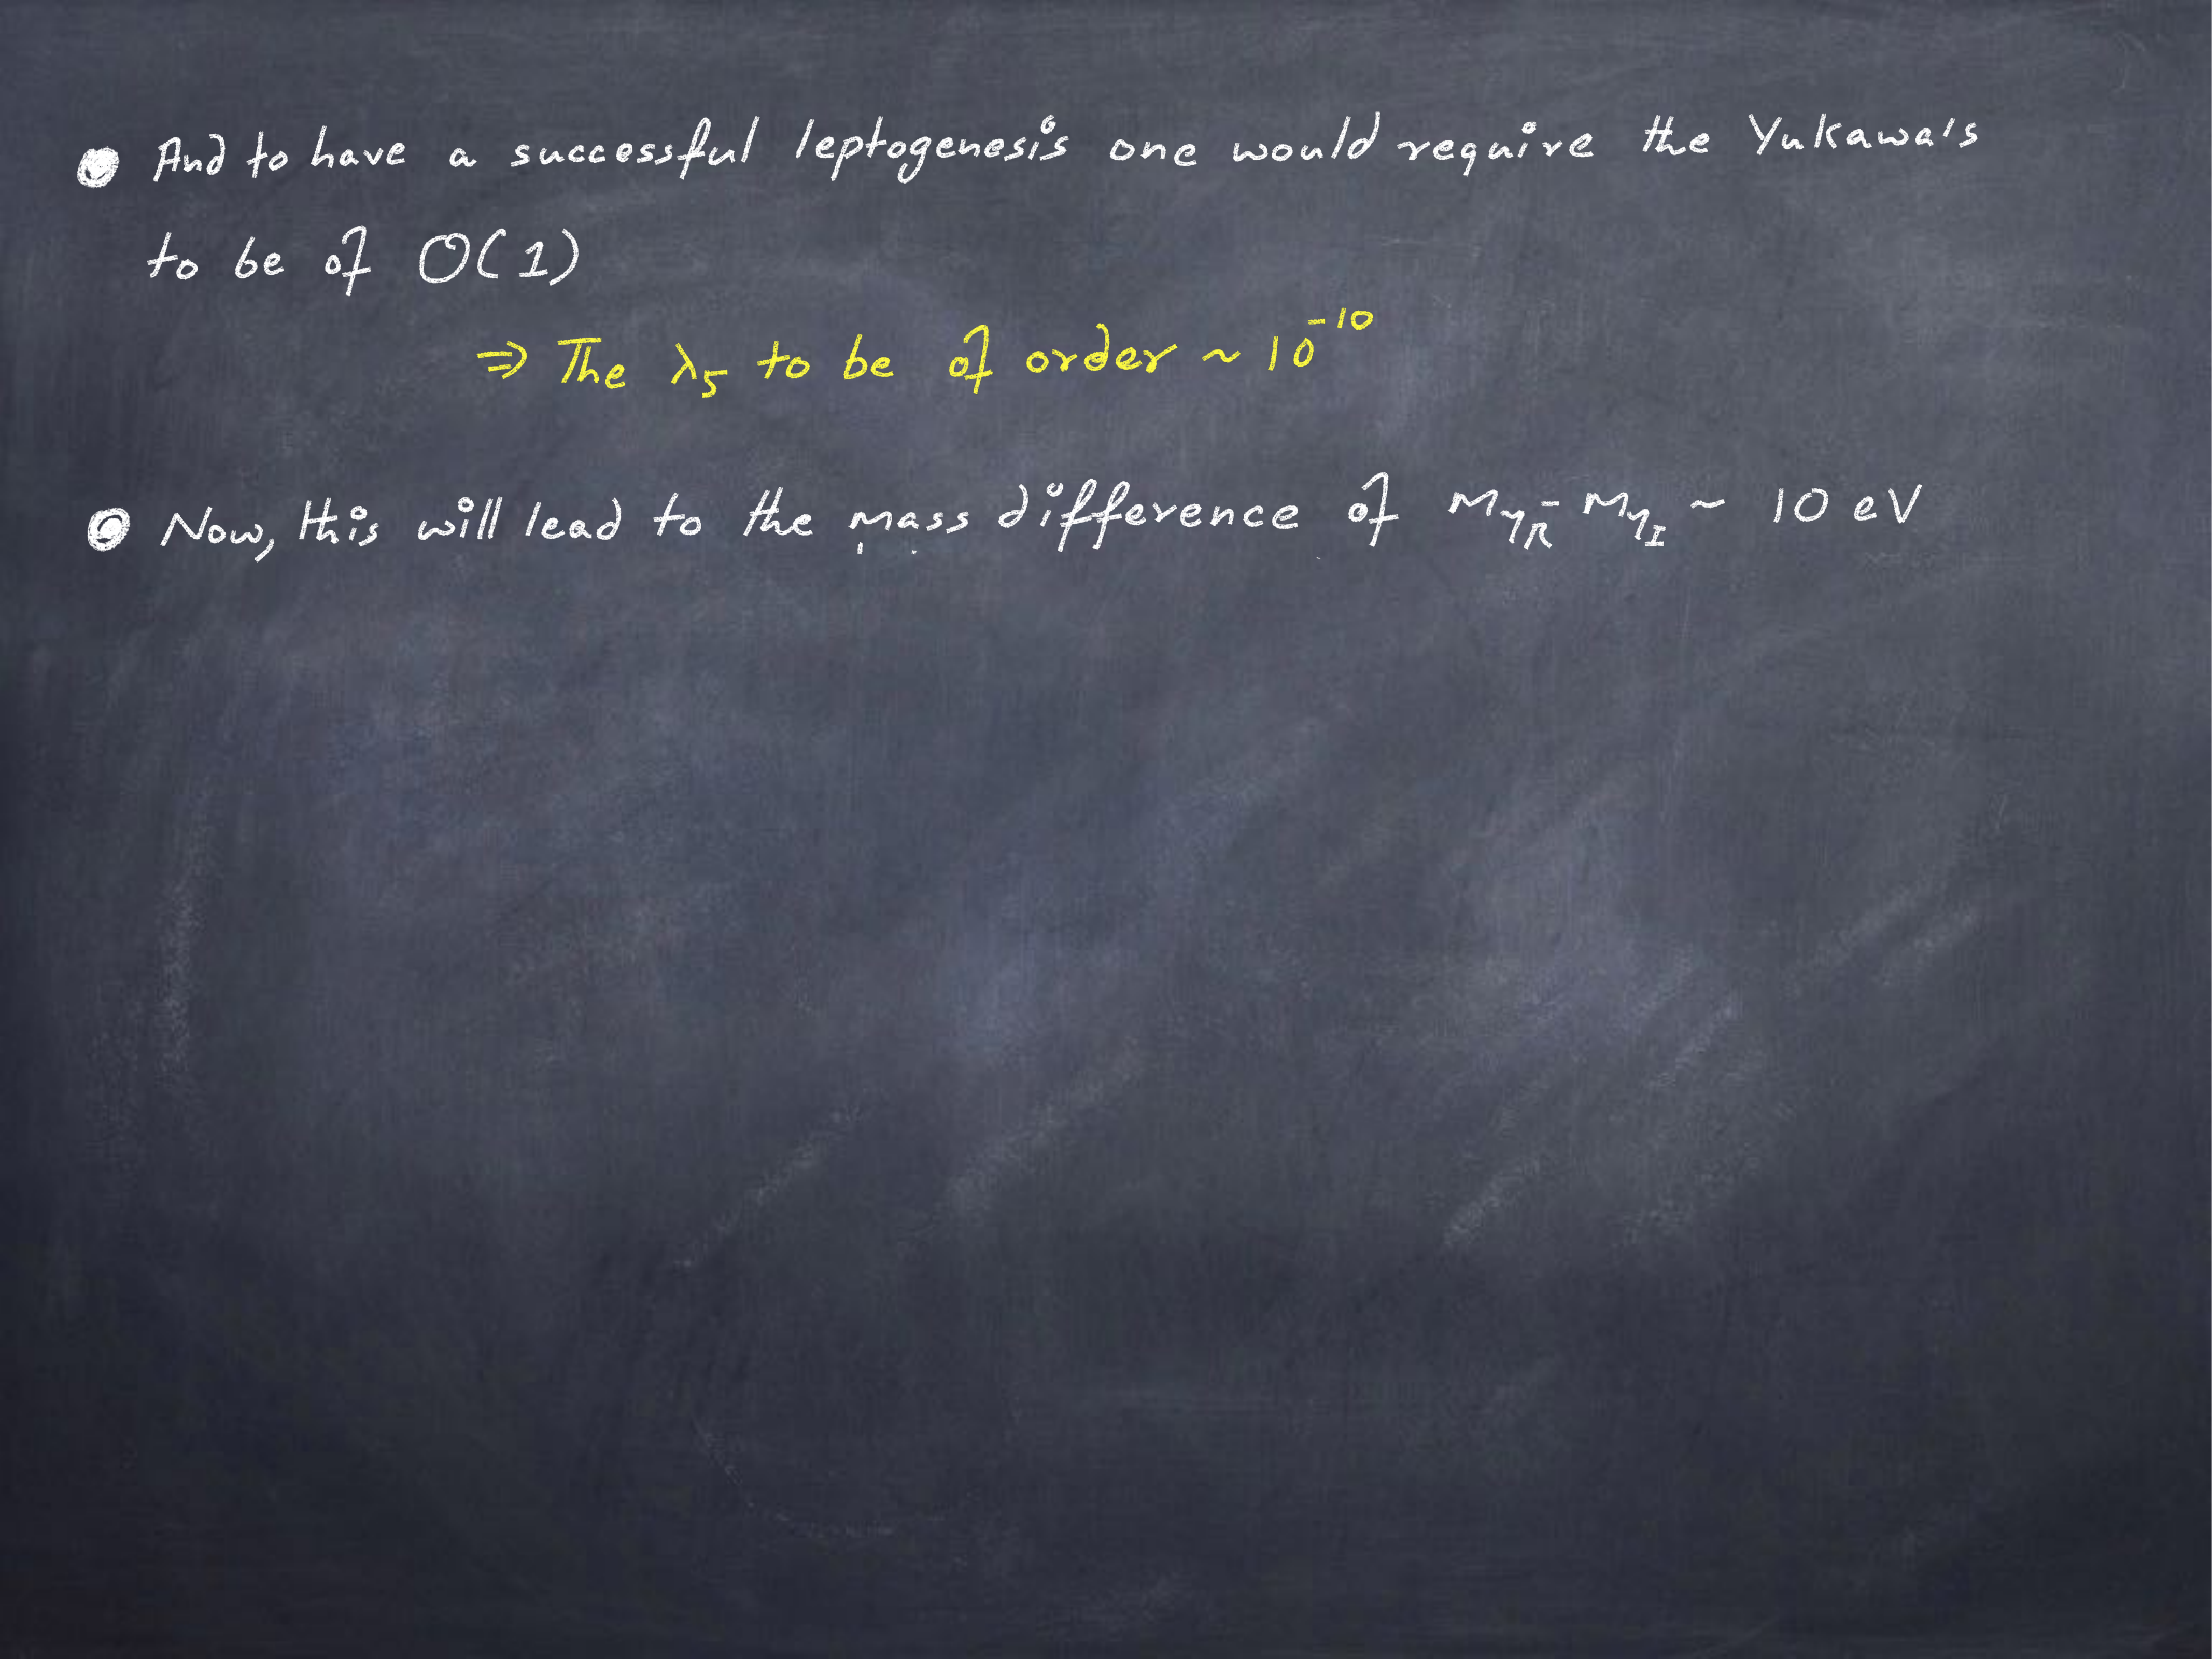 And to have a successful leptogenesis one would require the Yukawa's
to be of O(1)
⇒ The λ₅ to be of order ~ 10⁻¹⁰
Now, this will lead to the mass difference of m_{η_R} - m_{η_I} ~ 10 eV